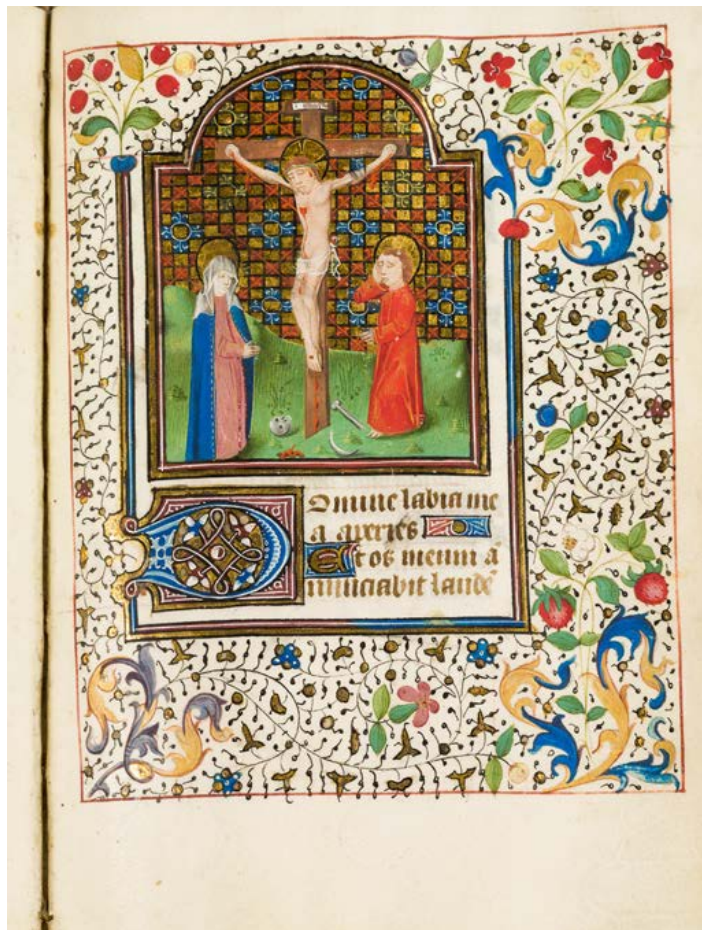 Domine labia me
a aperies
Et os meum a
nnunciabit laudē